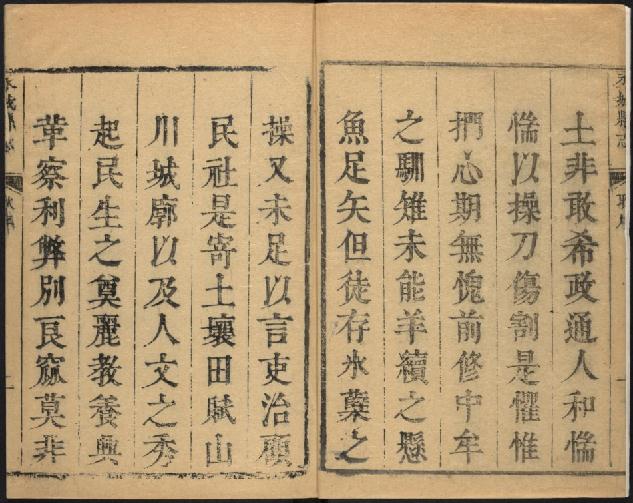 土非敢希政通人和惴
惴以操刀傷割是懼惟
捫心期無愧前修中牟
之馴雉未能羊續之懸
魚足矣但徒存氷蘗之
操又未足以言吏治顧
民社是寄土壤田賦山
川城廓以及人文之秀
起民生之奠麗教養興
革察利弊別良窳莫非
永城縣志